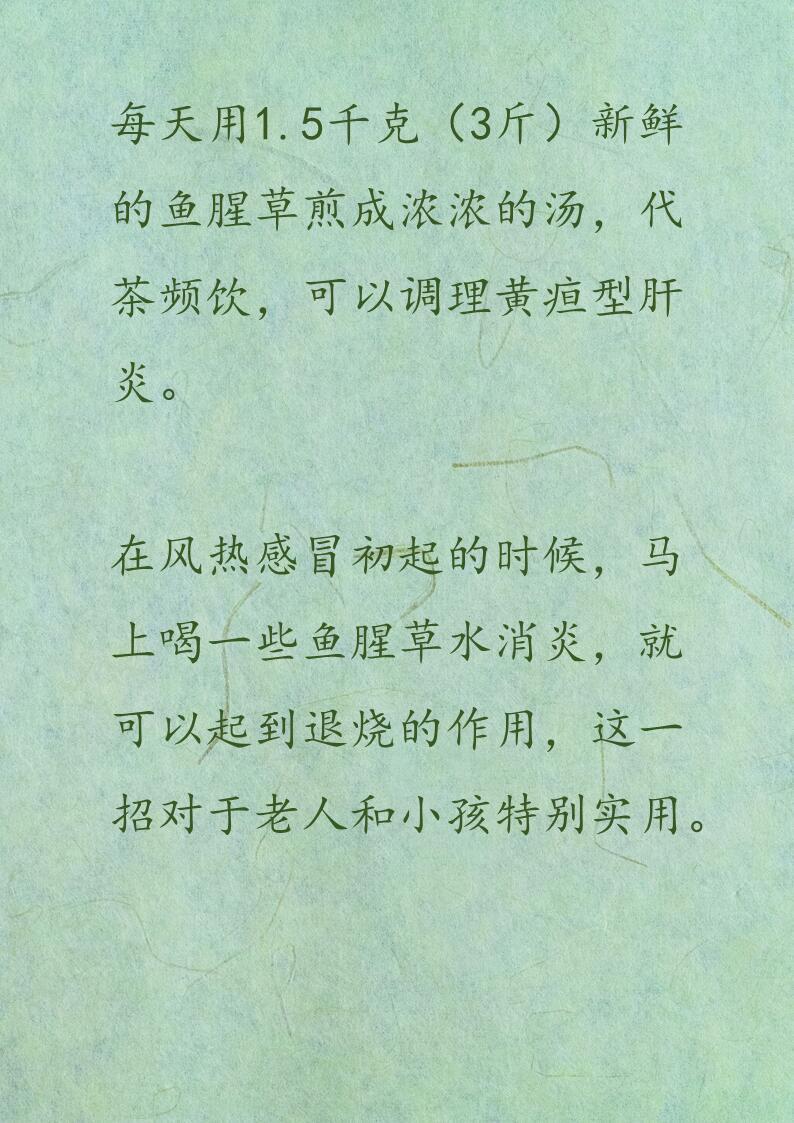 每天用1.5千克（3斤）新鲜
的鱼腥草煎成浓浓的汤，代
茶频饮，可以调理黄疸型肝
炎。
在风热感冒初起的时候，马
上喝一些鱼腥草水消炎，就
可以起到退烧的作用，这一
招对于老人和小孩特别实用。